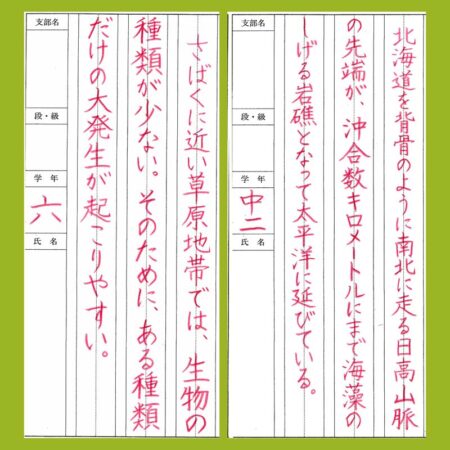 北海道を背骨のように南北に走る日高山脈
の先端が、沖合数キロメートルにまで海藻の
しげる岩礁となって太平洋に延びている。
支部名
段・級
学年
中二
氏名
さばくに近い草原地帯では、生物の
種類が少ない。そのために、ある種類
だけの大発生が起こりやすい。
支部名
段・級
学年
六
氏名